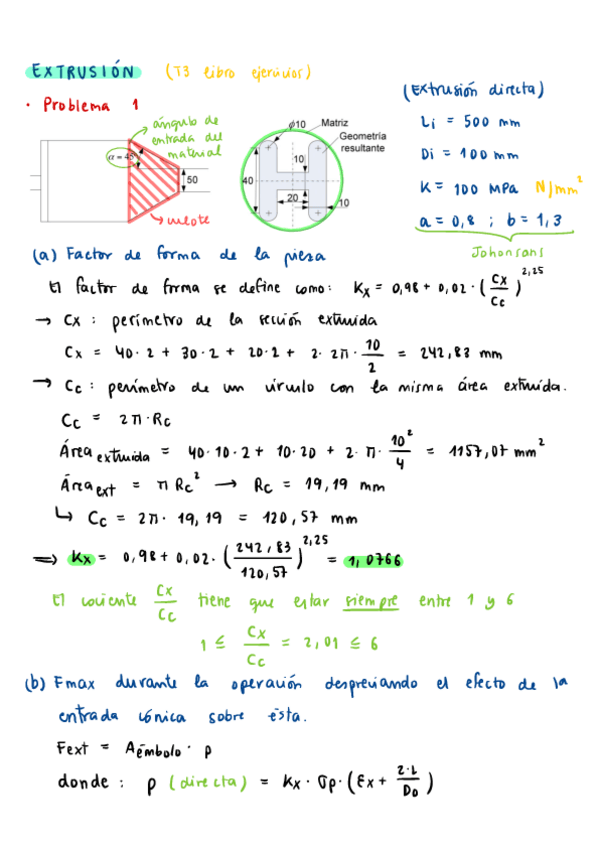 EXTRUSIÓN (T3 libro ejercicios)
• Problema 1
ángulo de
entrada del
material
α = 45°
50
vielote
ϕ10 Matriz
Geometría
resultante
10
40
20
10
(Extrusión directa)
Li = 500 mm
Di = 100 mm
K = 100 MPa N/mm²
a = 0,8 ; b = 1,3
Johonsons
(a) Factor de forma de la pieza
El factor de forma se define como: Kx = 0,98 + 0,02 · (Cx/Cc)^2,25
→ Cx : perímetro de la sección extruida
Cx = 40·2 + 30·2 + 20·2 + 2·2π·10/2 = 242,83 mm
→ Cc : perímetro de un círculo con la misma área extruida.
Cc = 2π·Rc
Área extruida = 40·10·2 + 10·20 + 2·π·10²/4 = 1157,07 mm²
Área ext = π Rc² → Rc = 19,19 mm
↳ Cc = 2π·19,19 = 120,57 mm
⇒ Kx = 0,98 + 0,02·(242,83/120,57)^2,25 = 1,0766
El cociente Cx/Cc tiene que estar siempre entre 1 y 6
1 ≤ Cx/Cc = 2,01 ≤ 6
(b) Fmax durante la operación despreciando el efecto de la
entrada cónica sobre ésta.
Fext = Aémbolo · p
donde : p (directa) = Kx · σp · (εx + 2·L/Do)